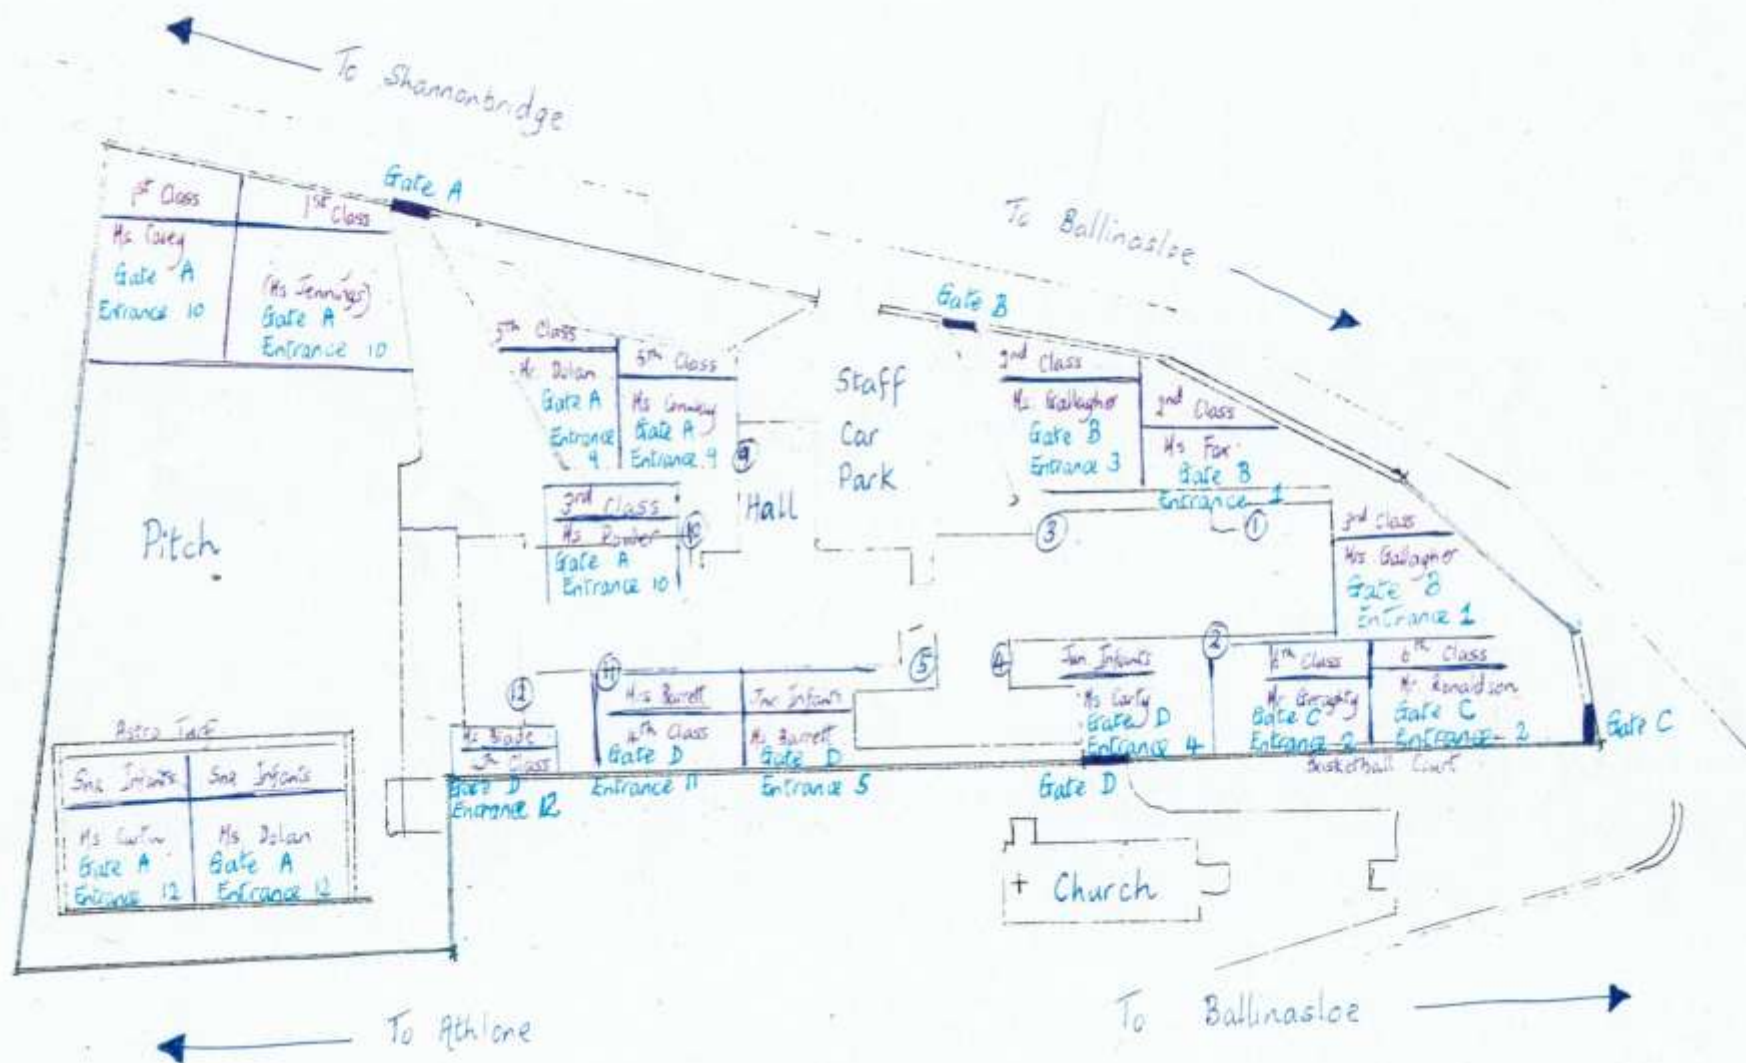 To Shannonbridge
Gate A
To Ballinasloe
Gate B
1st Class
1st Class
Ms
Gate A
Entrance 10
(Ms Jennings)
Gate A
Entrance 10
5th Class
Mr. Dolan
Gate A
Entrance
9
5th Class
Ms Conway
Gate A
Entrance 9
9
Staff
Car
Park
2nd Class
Ms. Gallagher
Gate B
Entrance 3
2nd Class
Ms Fox
Gate B
Entrance 1
3rd Class
Ms
Gate A
Entrance 10
10
Hall
3
1
3rd Class
Mrs Gallagher
Gate B
Entrance 1
Pitch
12
11
Mrs Barrett
4th Class
Gate D
Entrance 11
Jnr Infants
Ms Barrett
Gate D
Entrance 5
5
4
Jun Infants
Ms Carty
Gate D
Entrance 4
2
6th Class
Mr Geraghty
Gate C
Entrance 2
6th Class
Mr. Ronaldson
Gate C
Entrance 2
Gate C
Basketball Court
Class
Gate D
Entrance 12
Gate D
Astro Turf
Snr Infants
Snr Infants
Ms
Gate A
Entrance 12
Ms Dolan
Gate A
Entrance 12
Church
To Athlone
To Ballinasloe